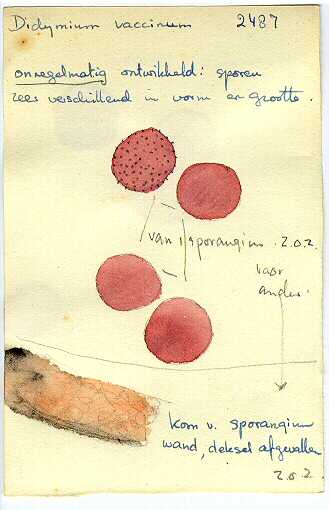 Didymium vaccinum 2487
onregelmatig ontwikkeld: sporen
zeer verschillend in vorm en grootte.
van 1 sporangium. Z.O.Z.
voor
ander.
Kom v. sporangium
wand, deksel afgevallen
Z.O.Z.